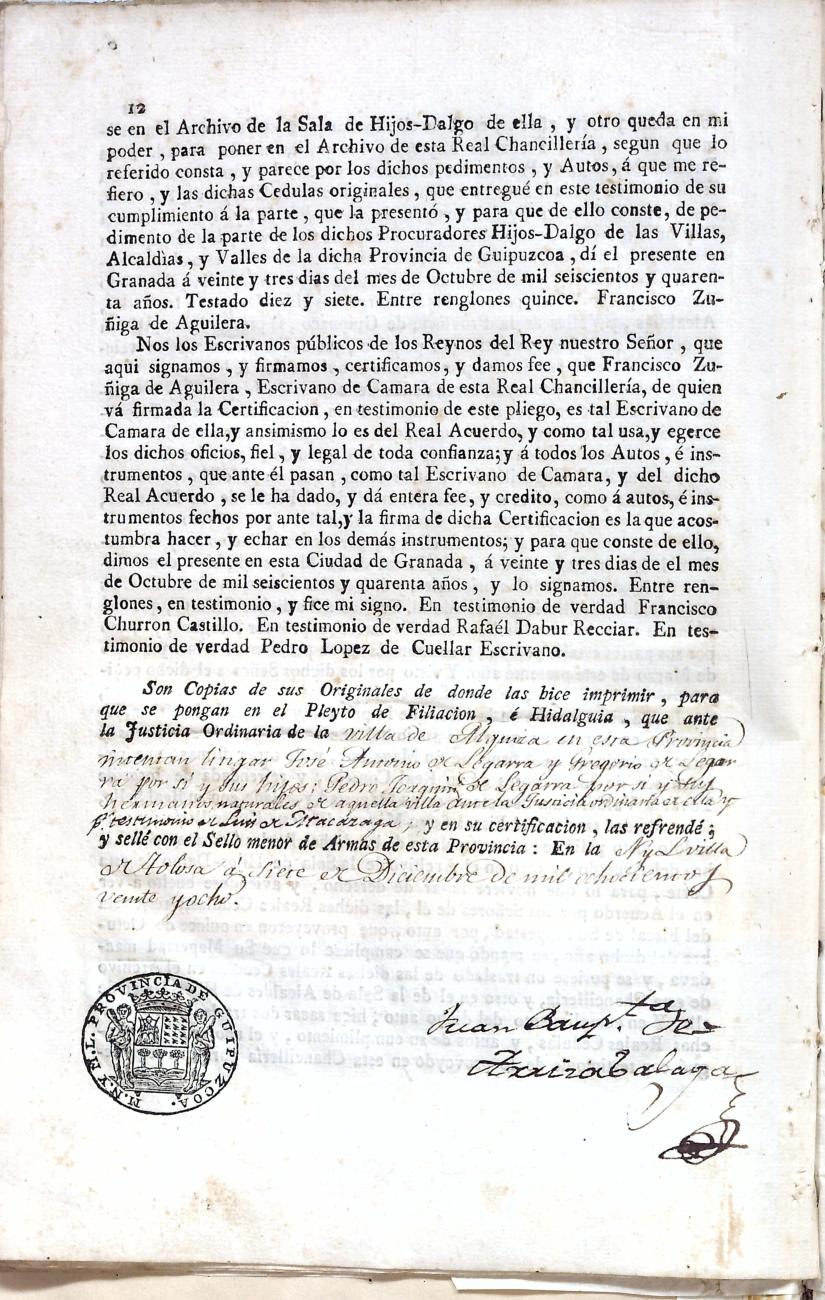 12
se en el Archivo de la Sala de Hijos-Dalgo de ella , y otro queda en mi
poder , para poner en el Archivo de esta Real Chancillería , segun que lo
referido consta , y parece por los dichos pedimentos , y Autos, á que me re-
fiero , y las dichas Cedulas originales , que entregué en este testimonio de su
cumplimiento á la parte , que la presentó , y para que de ello conste, de pe-
dimento de la parte de los dichos Procuradores Hijos-Dalgo de las Villas,
Alcaldìas, y Valles de la dicha Provincia de Guipuzcoa , dí el presente en
Granada á veinte y tres dias del mes de Octubre de mil seiscientos y quaren-
ta años. Testado diez y siete. Entre renglones quince. Francisco Zu-
ñiga de Aguilera.
Nos los Escrivanos públicos de los Reynos del Rey nuestro Señor , que
aqui signamos , y firmamos , certificamos, y damos fee , que Francisco Zu-
ñiga de Aguilera , Escrivano de Camara de esta Real Chancillería, de quien
vá firmada la Certificacion , en testimonio de este pliego, es tal Escrivano de
Camara de ella,y ansimismo lo es del Real Acuerdo, y como tal usa,y egerce
los dichos oficios, fiel , y legal de toda confianza;y á todos los Autos , é ins-
trumentos , que ante él pasan , como tal Escrivano de Camara, y del dicho
Real Acuerdo , se le ha dado, y dá entera fee, y credito, como á autos, é ins-
trumentos fechos por ante tal,y la firma de dicha Certificacion es la que acos-
tumbra hacer , y echar en los demás instrumentos; y para que conste de ello,
dimos el presente en esta Ciudad de Granada , á veinte y tres dias de el mes
de Octubre de mil seiscientos y quarenta años , y lo signamos. Entre ren-
glones, en testimonio , y fice mi signo. En testimonio de verdad Francisco
Churron Castillo. En testimonio de verdad Rafaél Dabur Recciar. En tes-
timonio de verdad Pedro Lopez de Cuellar Escrivano.
Son Copias de sus Originales de donde las hice imprimir , para
que se pongan en el Pleyto de Filiacion , é Hidalguia , que ante
la Justicia Ordinaria de la villa de Alquiza en esta Provincia
intentan litigar José Antonio de Legarra y Gregorio de Legar
ra por sí y sus hijos; Pedro Joaquin de Legarra por sí y sus
hermanos, naturales de aquella villa ante la Justicia ordinaria de ella y
p.r testimonio de Luis de Atacazaga; y en su certificacion , las refrendé ;
y sellé con el Sello menor de Armas de esta Provincia : En la N y L villa
de Tolosa á siete de Diciembre de mil ochocientos y
veinte y ocho.
M.N.Y M.L. PROVINCIA DE GUIPUZCOA.
Juan Baup.ta de
Arrizabalaga